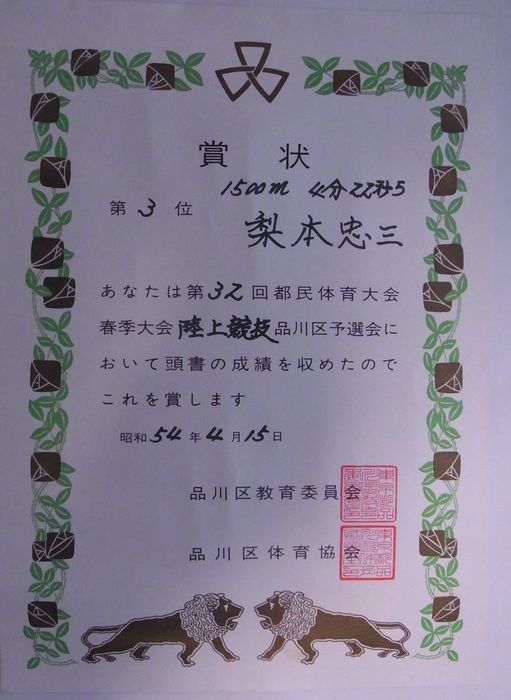 賞状
1500m 4分22秒5
第3位
梨本忠三
あなたは第32回都民体育大会
春季大会陸上競技品川区予選会に
おいて頭書の成績を収めたので
これを賞します
昭和54年4月15日
品川区教育委員会
品川区体育協会